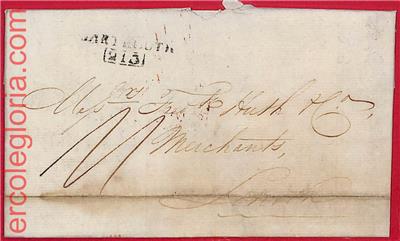 ercolegloria.com
DARTMOUTH
213
Messrs Fredk Huth & Co
Merchants,
London